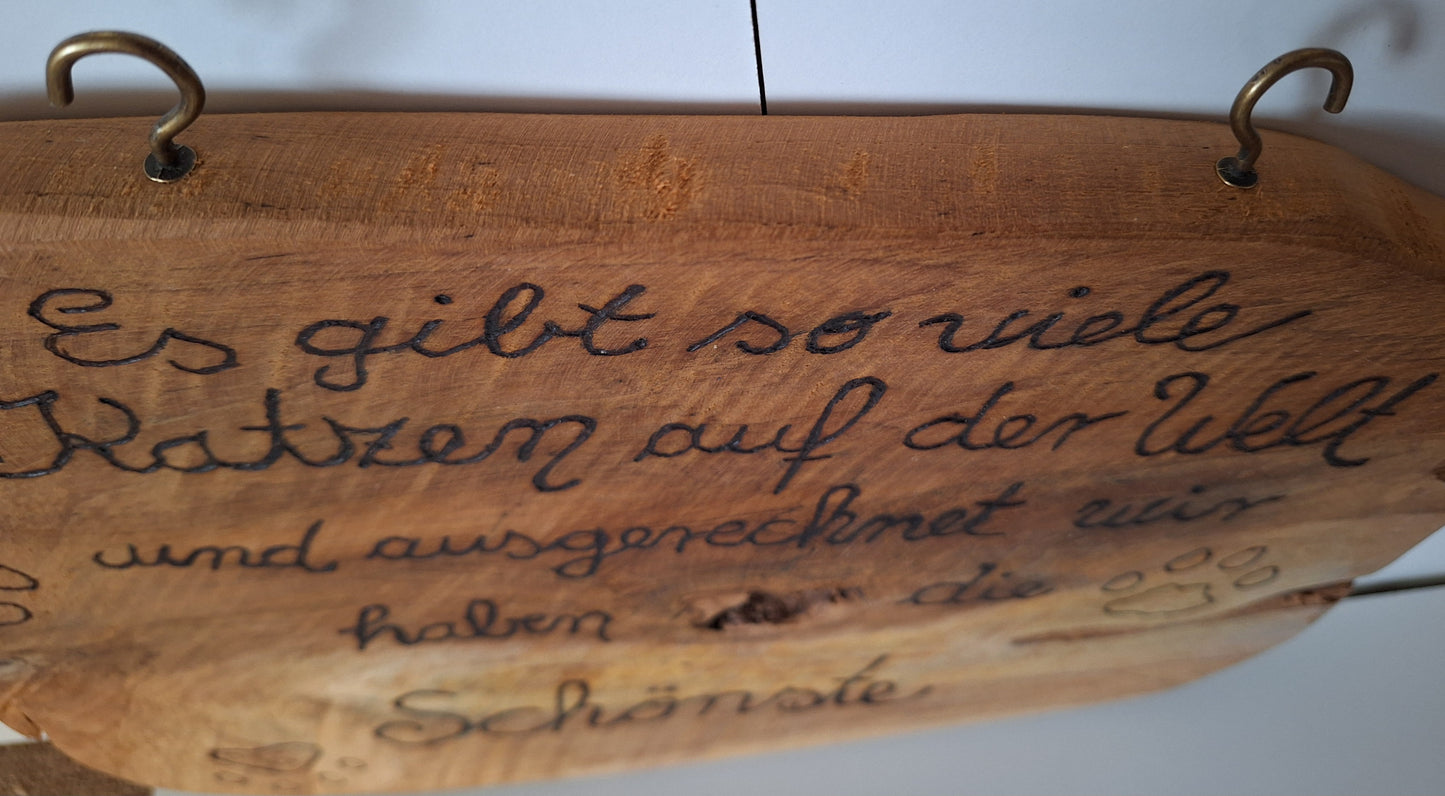 Es gibt so viele
Katzen auf der Welt
und ausgerechnet wir
haben die
Schönste